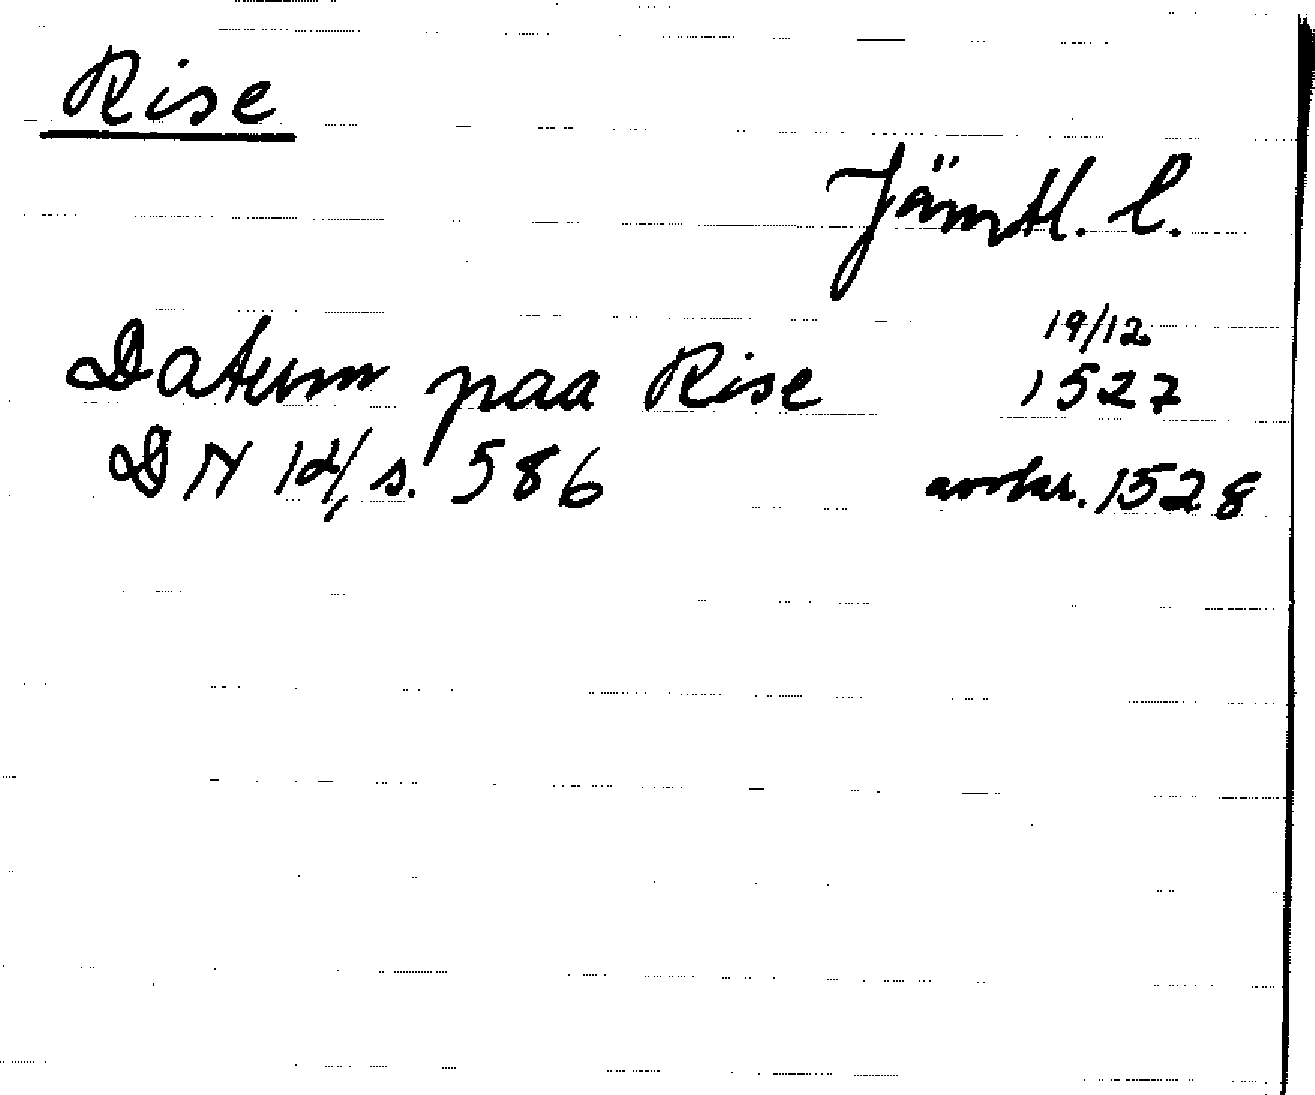 Rise
Jämtl. l.
Datum paa Rise 19/12 1527
DN 14/, s. 586 avskr. 1528